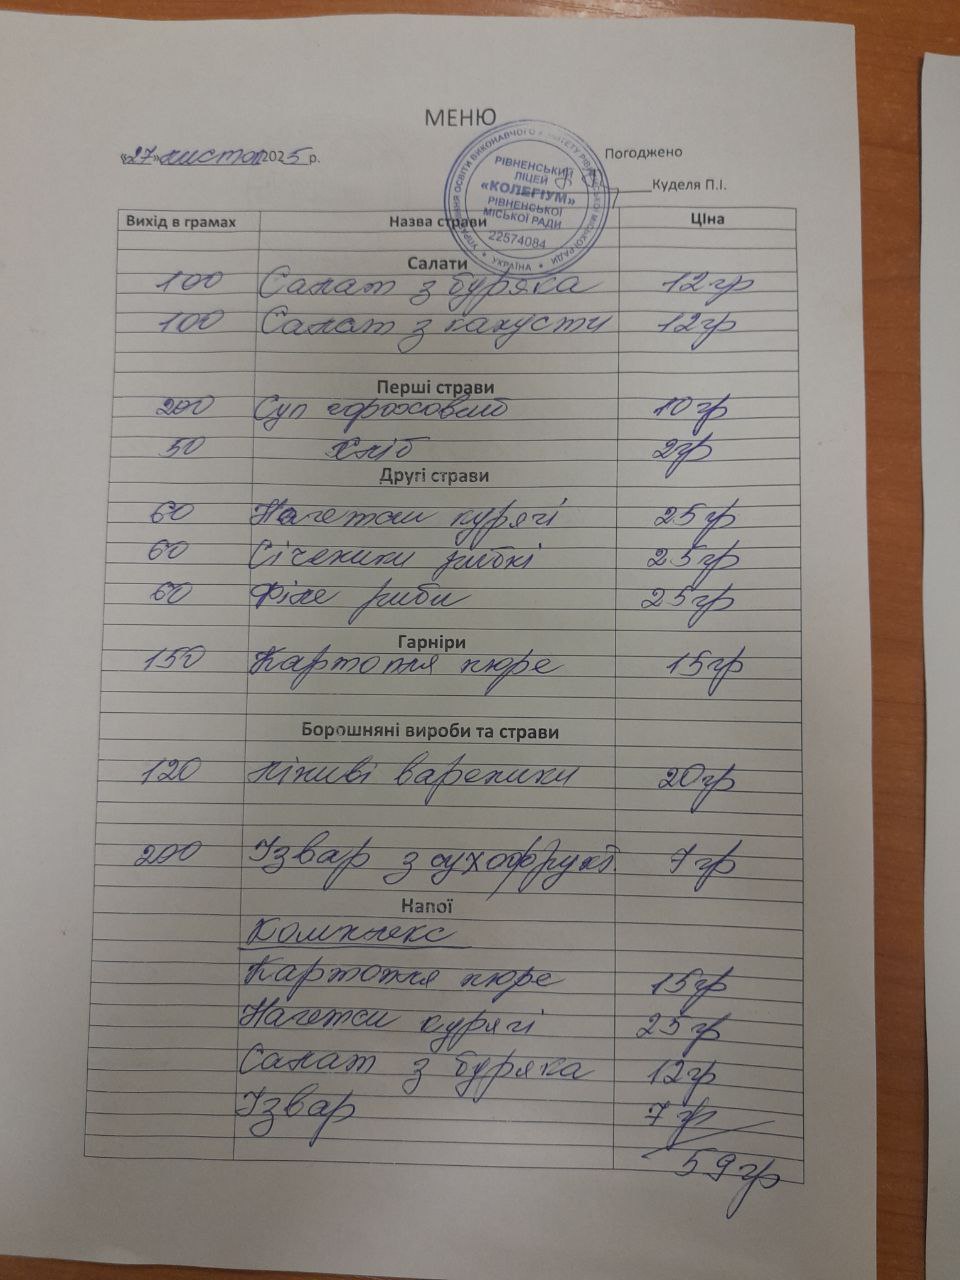 МЕНЮ
«27» листоп 2025 р.
Погоджено
Куделя П.І.
УПРАВЛІННЯ ОСВІТИ ВИКОНАВЧОГО КОМІТЕТУ РІВНЕНСЬКОЇ МІСЬКОЇ РАДИ
РІВНЕНСЬКИЙ
ЛІЦЕЙ
«КОЛЕГІУМ»
РІВНЕНСЬКОЇ
МІСЬКОЇ РАДИ
22574084
УКРАЇНА
Вихід в грамах Назва страви ЦІна
Салати
100 Салат з буряка 12гр
100 Салат з капусти 12гр
Перші страви
200 Суп гороховий 10гр
50 Хліб 2гр
Другі страви
60 Нагетси курячі 25гр
60 Січеники рибні 25гр
60 Філе риби 25гр
Гарніри
150 Картопля пюре 15гр
Борошняні вироби та страви
120 Ліниві вареники 20гр
200 Ізвар з сухофрукт. 7гр
Напої
Комплекс
Картопля пюре 15гр
Нагетси курячі 25гр
Салат з буряка 12гр
Ізвар 7гр
59гр